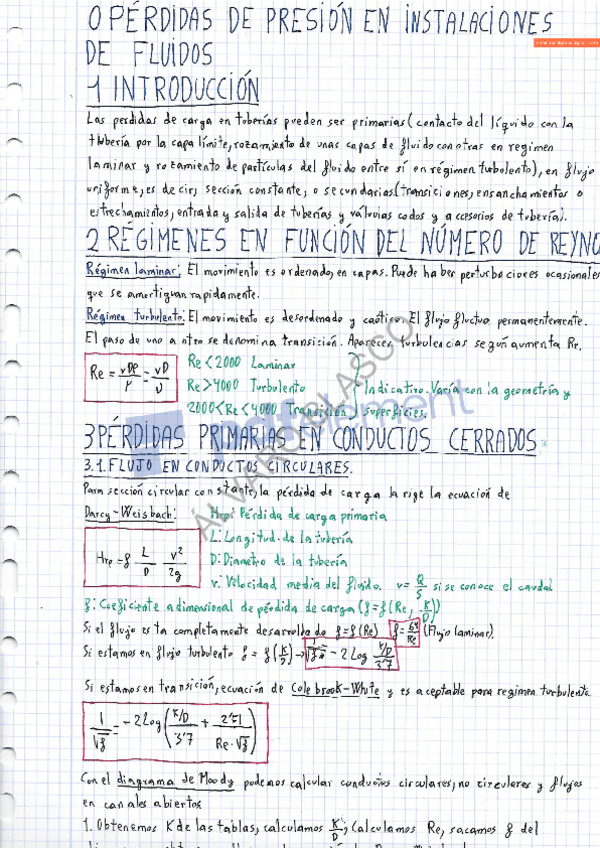 0 PÉRDIDAS DE PRESIÓN EN INSTALACIONES
DE FLUIDOS
1 INTRODUCCIÓN
Las perdidas de carga en tuberías pueden ser primarias (contacto del líquido con la
tubería por la capa límite, rozamiento de unas capas de fluido con otras en regimen
laminar y rozamiento de partículas del fluido entre sí en régimen turbulento), en flujo
uniforme, es decir, sección constante, o secundarias (transiciones, ensanchamientos o
estrechamientos, entrada y salida de tuberías y válvulas codos y accesorios de tubería).
2 RÉGIMENES EN FUNCIÓN DEL NÚMERO DE REYNO
Régimen laminar: El movimiento es ordenado, en capas. Puede haber perturbaciones ocasionales
que se amortiguan rapidamente.
Régimen turbulento: El movimiento es desordenado y caótico. El flujo fluctua permanentemente.
El paso de uno a otro se denomina transición. Aparecen turbulencias según aumenta Re.
Re = vDρ/μ = vD/ν
Re < 2000 Laminar
Re > 4000 Turbulento
2000 < Re < 4000 Transición
Indicativo. Varía con la geometría y
superficies.
3 PÉRDIDAS PRIMARIAS EN CONDUCTOS CERRADOS
3.1. FLUJO EN CONDUCTOS CIRCULARES.
Para sección circular constante, la pérdida de carga la rige la ecuación de
Darcy-Weisbach: Hrp: Pérdida de carga primaria
Hrp = f L/D v²/2g
L: Longitud de la tubería
D: Diametro de la tubería
v: Velocidad media del fluido. v = Q/S si se conoce el caudal
f: Coeficiente adimensional de pérdida de carga (f = f(Re, K/D))
Si el flujo esta completamente desarrollado f = f(Re) f = 64/Re (Flujo laminar).
Si estamos en flujo turbulento f = f(K/D) → 1/√f = -2 Log K/D/3'7
Si estamos en transición, ecuación de Colebrook-White y es aceptable para regimen turbulento.
1/√f = -2 Log (K/D/3'7 + 2'51/Re·√f)
Con el diagrama de Moody podemos calcular conductos circulares, no circulares y flujos
en canales abiertos
1. Obtenemos K de las tablas, calculamos K/D, calculamos Re, sacamos f del
ÁLVARO BLASCO
element